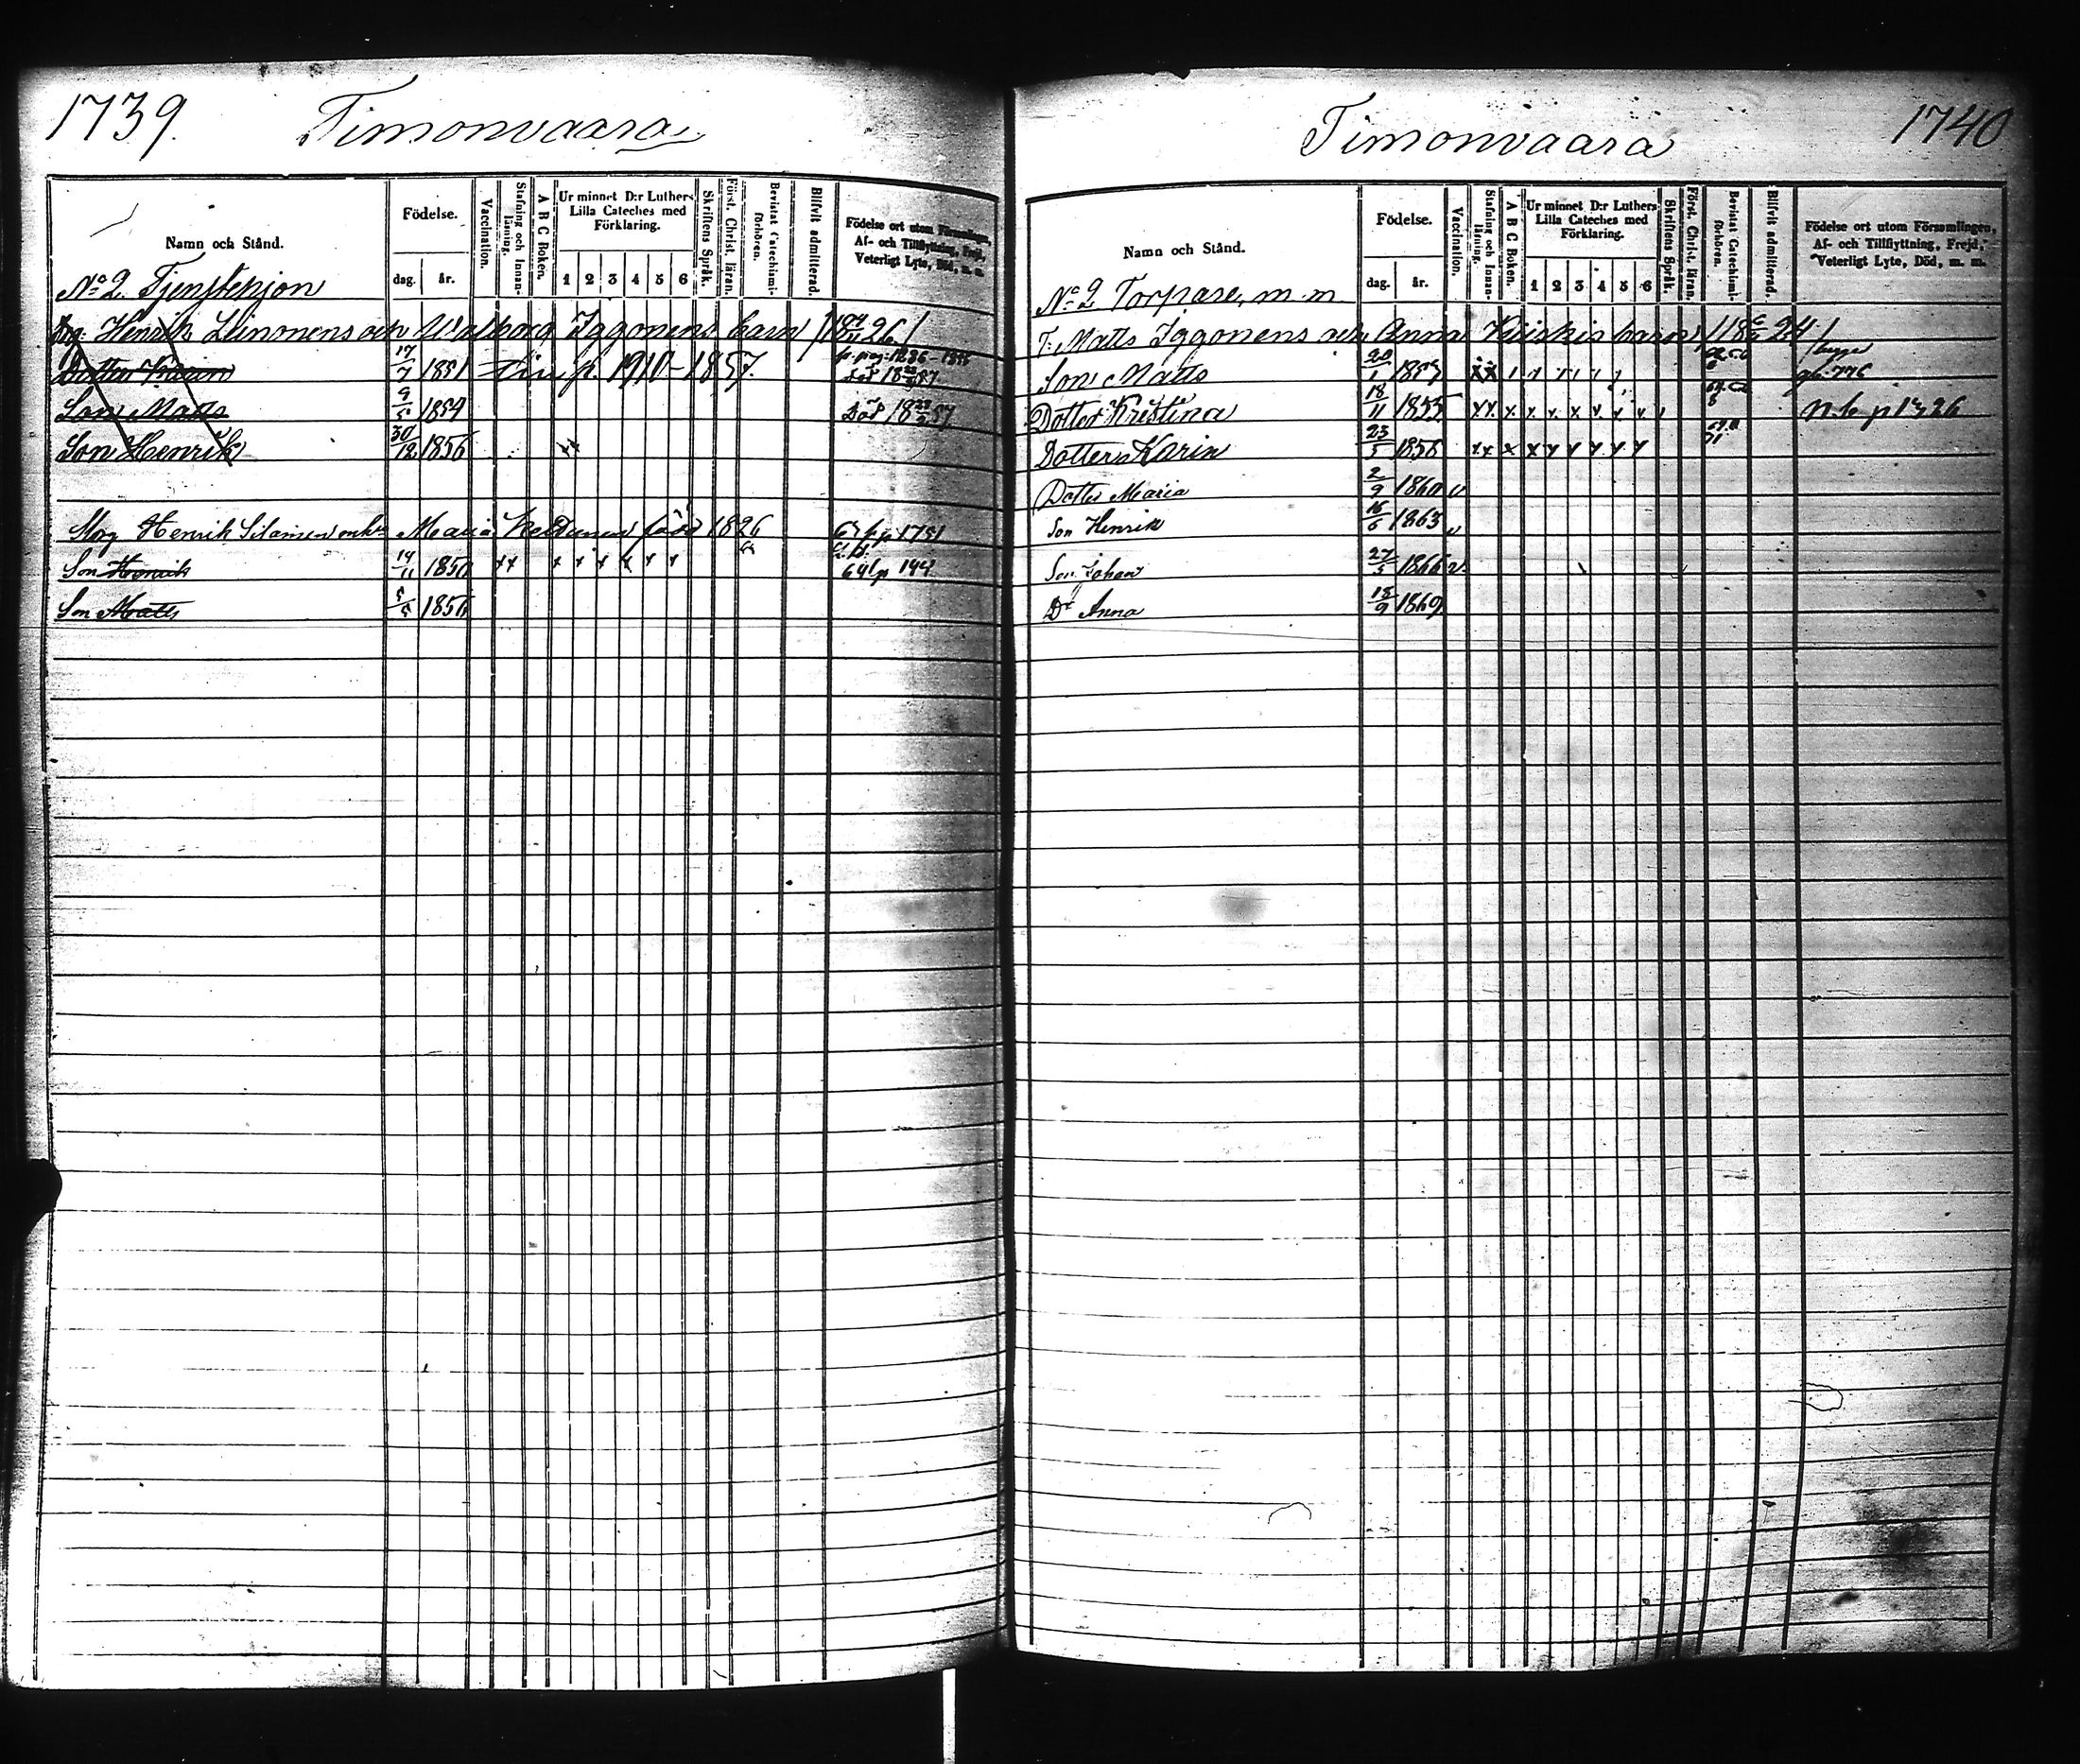 1739. Timonvaara
Namn och Stånd.
Födelse.
dag. år.
Vaccination.
Stafning och Innan-läsning.
A B C Boken.
Ur minnet D:r Luthers Lilla Cateches med Förklaring.
1 2 3 4 5 6
Skriftens Språk.
Först. Christ. läran.
Bevistat Catechismi-förhören.
Blifvit admitterad.
Födelse ort utom Församlingen, Af- och Tillflyttning, Frejd, Veterligt Lyte, Död, m. m.
No 2. Tjenstehjon
Henrik Leinonens och Walborg Iggonens barn
Dotter Karin 17/7 1851 1910-1857. Död
Son Matts 9/5 1854 Död
Son Henrik 30/12 1856
Henrik Silamen Maria född 1826
Son Henrik 14/11 1850
Son Matts 5/5 1856
Timonvaara 1740
Namn och Stånd.
Födelse.
dag. år.
Vaccination.
Stafning och Innan-läsning.
A B C Boken.
Ur minnet D:r Luthers Lilla Cateches med Förklaring.
1 2 3 4 5 6
Skriftens Språk.
Först. Christ. läran.
Bevistat Catechismi-förhören.
Blifvit admitterad.
Födelse ort utom Församlingen, Af- och Tillflyttning, Frejd, Veterligt Lyte, Död, m. m.
No 2 Torpare, m. m.
T. Matts Iggonens och Anna Kiiskis barn
Son Matts 20/1 1853
Dotter Kristina 18/11 1855 p 1326
Dottern Karin 23/5 1858
Dotter Maria 2/9 1860 v
Son Henrik 16/6 1863 v
Son Johan 27/5 1866 v
Dr Anna 18/9 1869